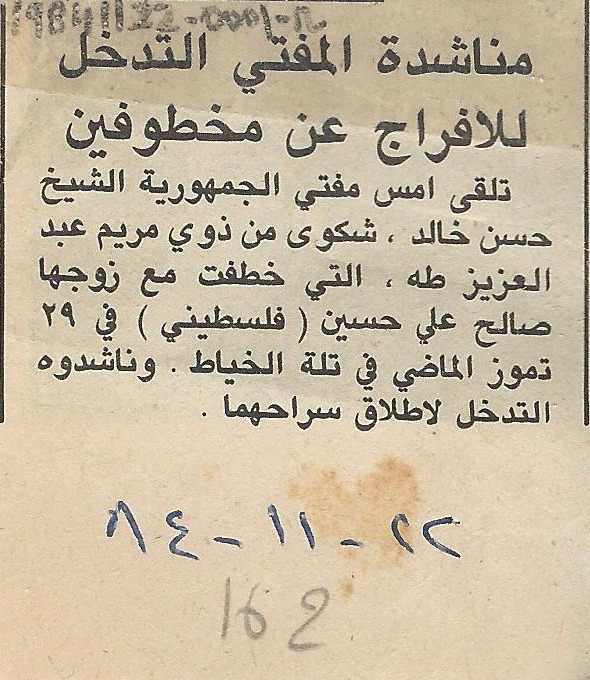 19841122-0001-N
مناشدة المفتي التدخل
للافراج عن مخطوفين
تلقى امس مفتي الجمهورية الشيخ
حسن خالد ، شكوى من ذوي مريم عبد
العزيز طه ، التي خطفت مع زوجها
صالح علي حسين ( فلسطيني ) في ٢٩
تموز الماضي في تلة الخياط . وناشدوه
التدخل لاطلاق سراحهما .
٢٢-١١-٨٤
162